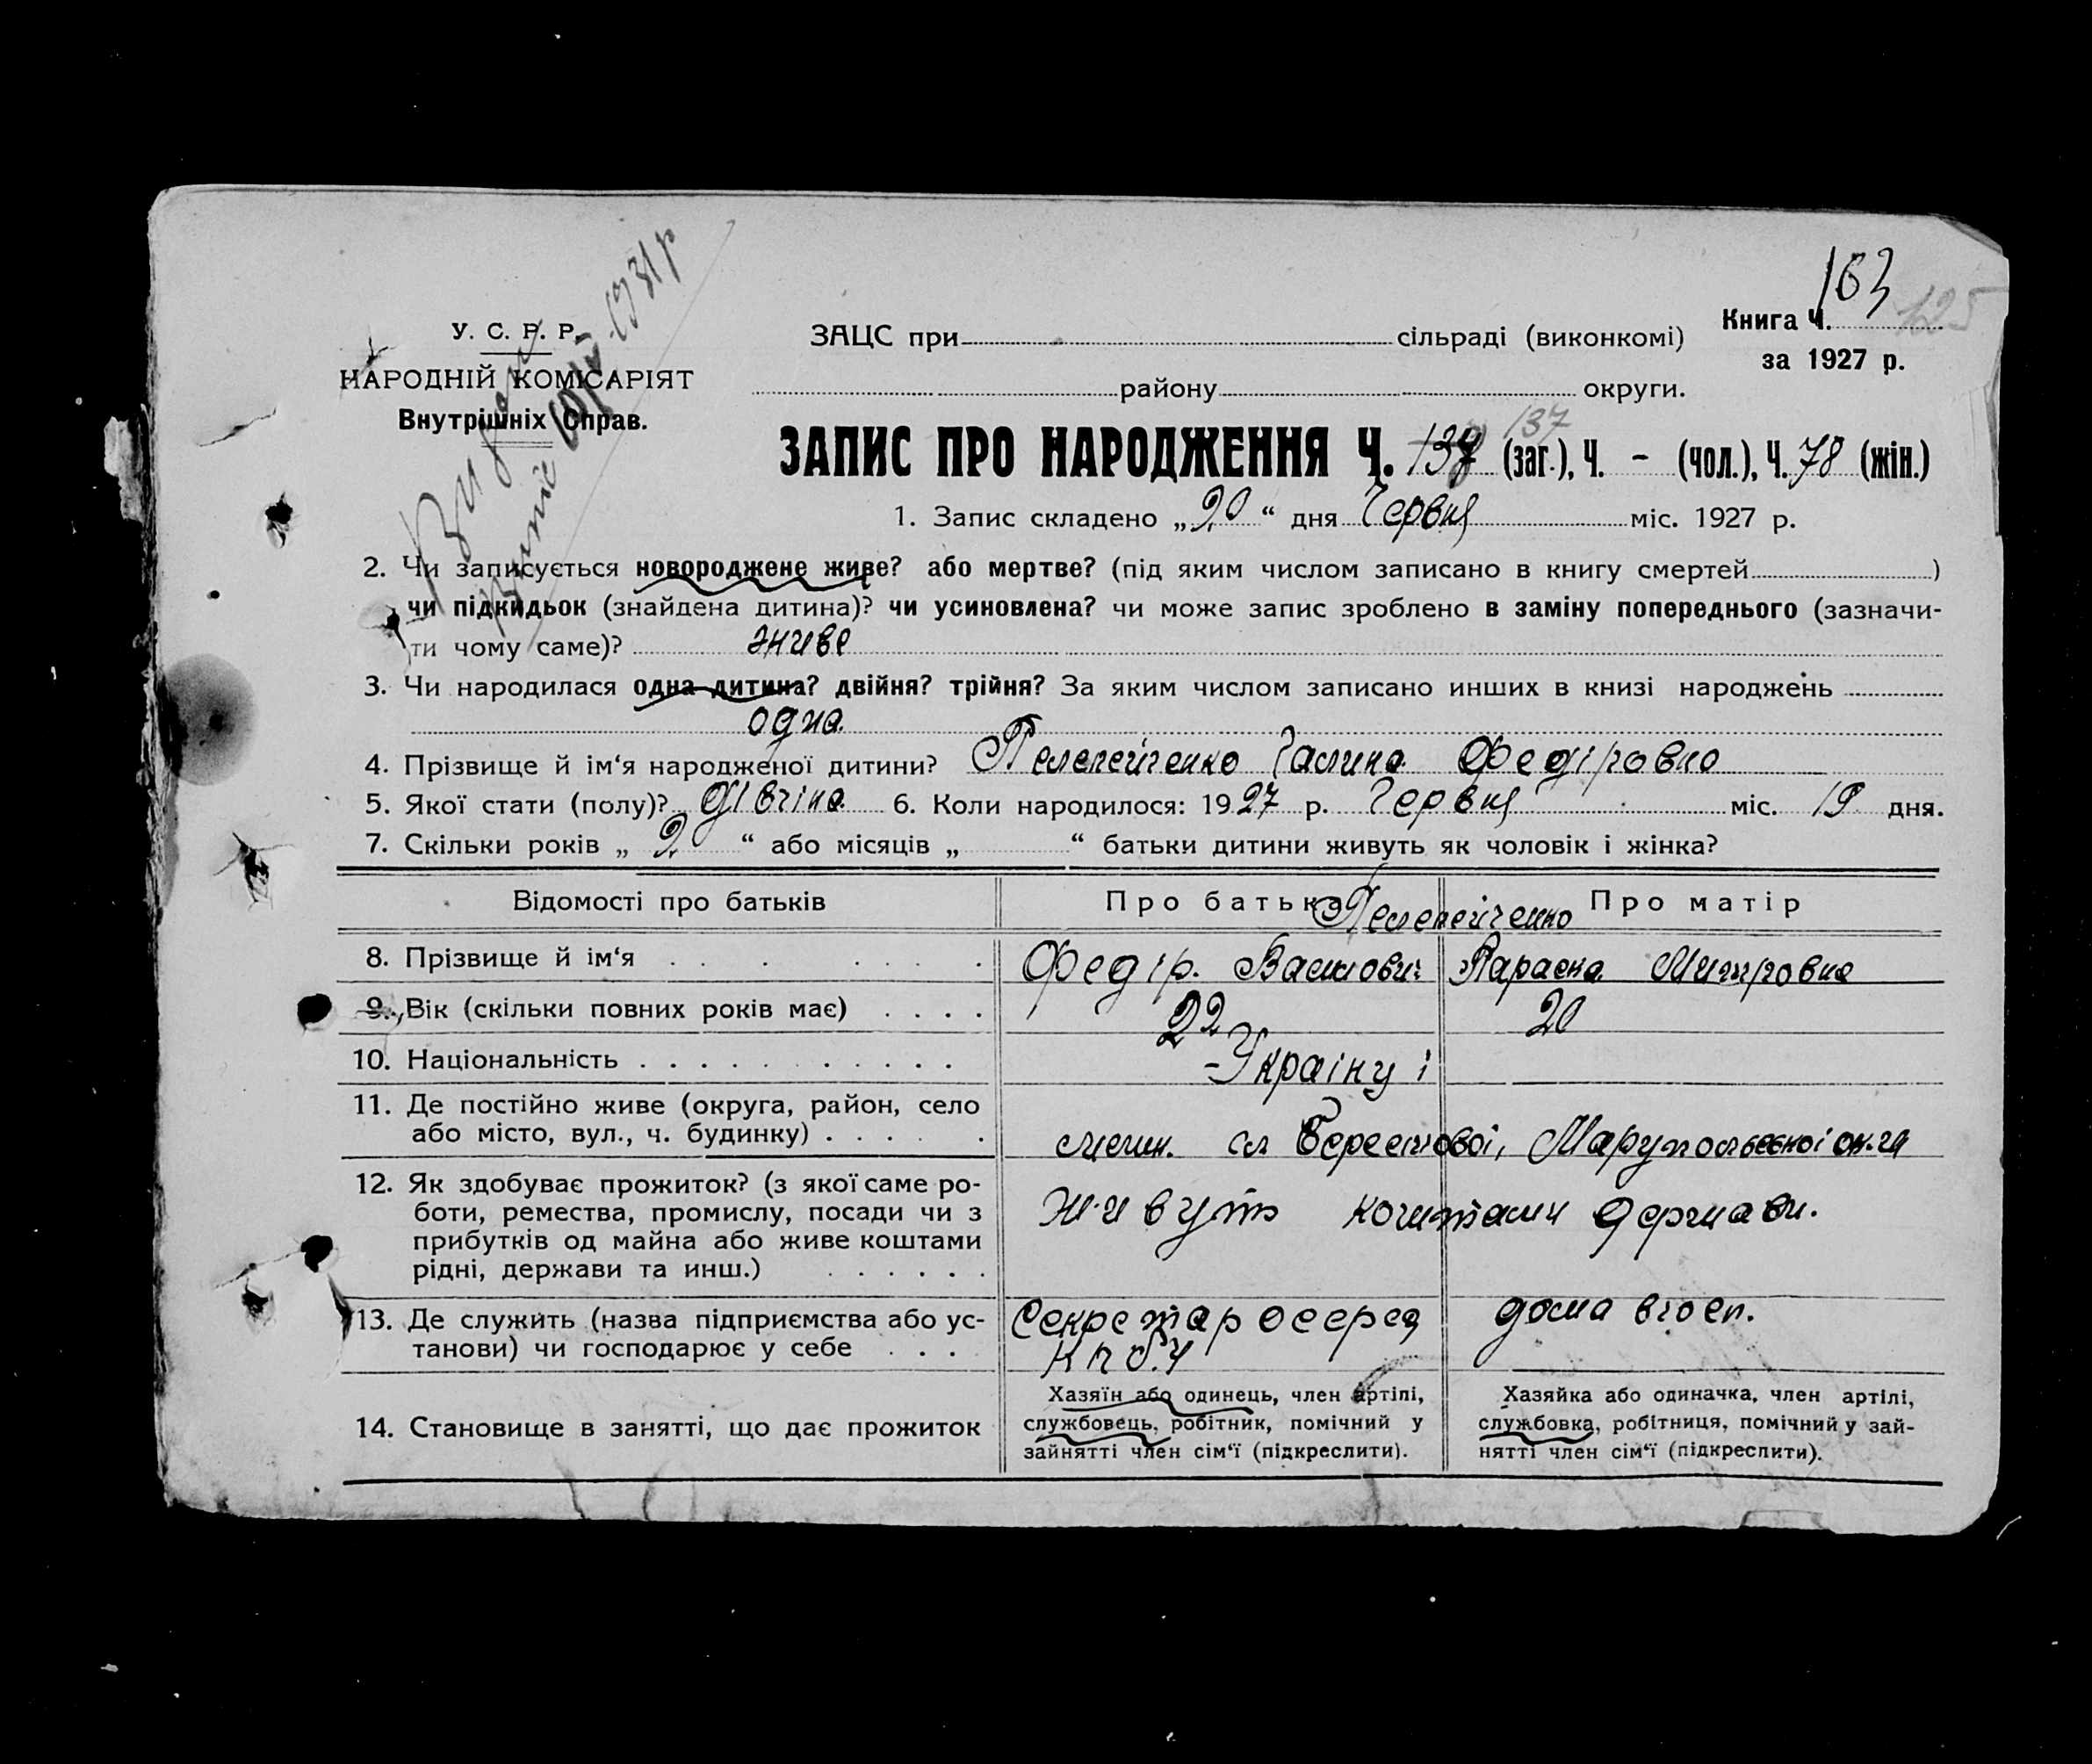 163
125
У. С. Р. Р.
НАРОДНІЙ КОМІСАРІЯТ
Внутрішніх Справ.
ЗАЦС при сільраді (виконкомі)
району округи.
Книга Ч.
за 1927 р.
137
ЗАПИС ПРО НАРОДЖЕННЯ Ч. 137 (заг.), Ч. - (чол.), Ч. 78 (жін.)
1. Запис складено „20“ дня Червня міс. 1927 р.
2. Чи записується новороджене живе? або мертве? (під яким числом записано в книгу смертей )
чи підкидьок (знайдена дитина)? чи усиновлена? чи може запис зроблено в заміну попереднього (зазначи-
ти чому саме)? живе
3. Чи народилася одна дитина? двійня? трійня? За яким числом записано инших в книзі народжень
одна
4. Прізвище й ім‘я народженої дитини? Пелепейченко Галина Федіровна
5. Якої стати (полу)? дівчіна 6. Коли народилося: 1927 р. Червня міс. 19 дня.
7. Скільки років „ 2 “ або місяців „ “ батьки дитини живуть як чоловік і жінка?
Відомості про батьків Про батька Про матір
Пелепейченко
8. Прізвище й ім‘я Федір. Параска Митровна
9. Вік (скільки повних років має) 22 20
10. Національність - Україну і
11. Де постійно живе (округа, район, село
або місто, вул., ч. будинку) Берестової,
12. Як здобуває прожиток? (з якої саме ро-
боти, ремества, промислу, посади чи з
прибутків од майна або живе коштами
рідні, держави та инш.)
Живуть коштами держави.
13. Де служить (назва підприємства або ус-
танови) чи господарює у себе
Секретар осеред
КПб.У
дома
14. Становище в занятті, що дає прожиток
Хазяїн або одинець, член артілі,
службовець, робітник, помічний у
зайнятті член сім‘ї (підкреслити).
Хазяйка або одиначка, член артілі,
службовка, робітниця, помічний у зай-
нятті член сім‘ї (підкреслити).